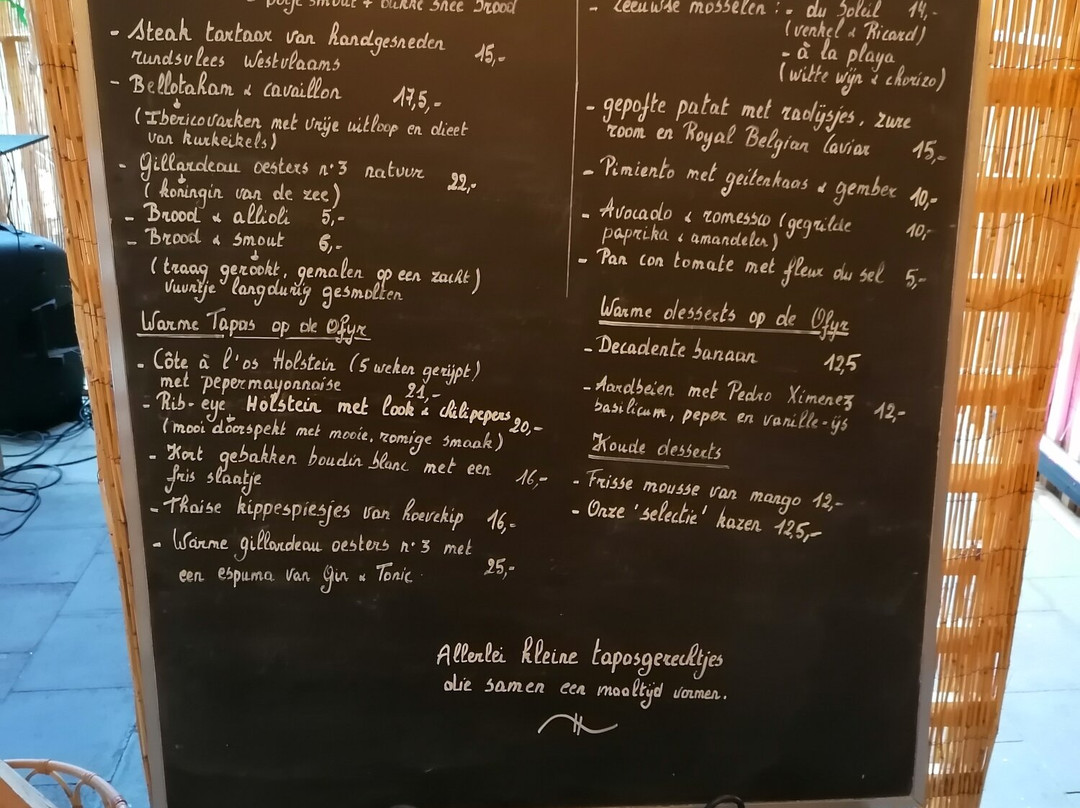 - potje smout + dikke snee brood
- Steak tartaar van handgesneden
rundsvlees Westvlaams 15,-
- Bellotaham & cavaillon 17,5,-
(Ibericovarken met vrije uitloop en dieet
van kurkeikels)
- Gillardeau oesters n°3 natuur 22,-
(koningin van de zee)
- Brood & allioli 5,-
- Brood & smout 6,-
(traag gerookt, gemalen op een zacht)
vuurtje langdurig gesmolten
Warme Tapas op de Ofyr
- Côte à l'os Holstein (5 weken gerijpt)
met pepermayonnaise 21,-
- Rib-eye Holstein met look & chilipepers 20,-
(mooi doorspekt met mooie, romige smaak)
- Kort gebakken boudin blanc met een
fris slaatje 16,-
- Thaise kippespiesjes van hoevekip 16,-
- Warme gillardeau oesters n°3 met
een espuma van Gin & Tonic 25,-
- Zeeuwse mosselen : - du Soleil 14,-
(venkel & Ricard)
- à la playa
(witte wijn & chorizo)
- gepofte patat met radijsjes, zure
room en Royal Belgian Caviar 15,-
- Pimiento met geitenkaas & gember 10,-
- Avocado & romessco (gegrilde
paprika & amandelen) 10,-
- Pan con tomate met fleur du sel 5,-
Warme desserts op de Ofyr
- Decadente banaan 12,5
- Aardbeien met Pedro Ximenez
basilicum, peper en vanille-ijs 12,-
Koude desserts
- Frisse mousse van mango 12,-
- Onze 'selectie' kazen 12,5,-
Allerlei kleine tapasgerechtjes
die samen een maaltijd vormen.